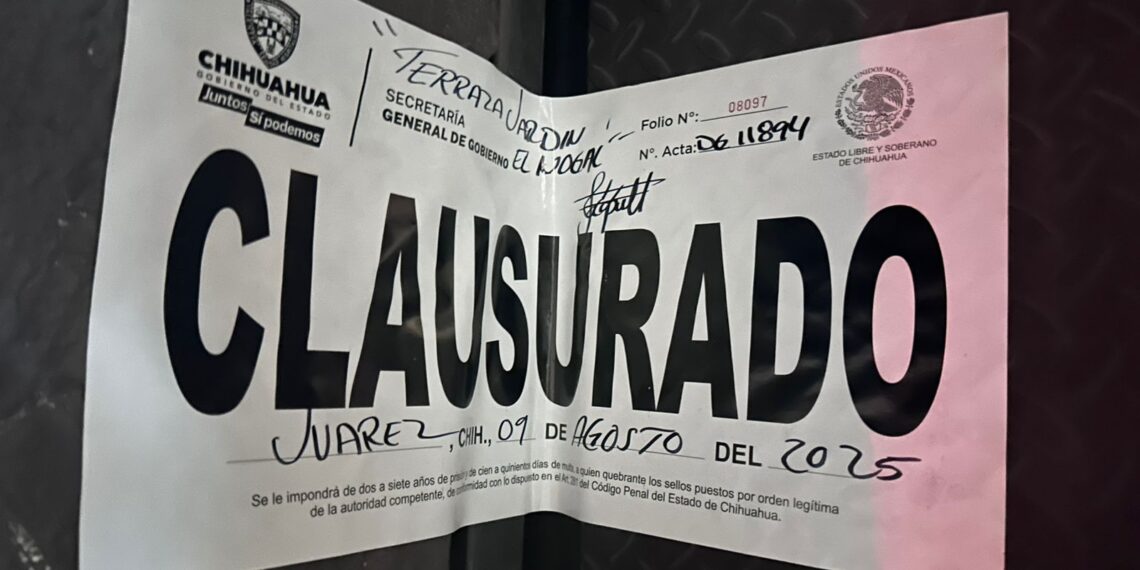 CHIHUAHUA
GOBIERNO DEL ESTADO
Juntos
Sí podemos
"TERRAZA JARDIN
EL NOGAL"
SECRETARÍA
GENERAL DE GOBIERNO
Folio N°: 08097
N°. Acta: DG 11894
ESTADOS UNIDOS MEXICANOS
ESTADO LIBRE Y SOBERANO
DE CHIHUAHUA
CLAUSURADO
JUAREZ, CHIH., 09 DE AGOSTO DEL 2025
Se le impondrá de dos a siete años de prisión y de cien a quinientos días de multa, a quien quebrante los sellos puestos por orden legítima
de la autoridad competente, de conformidad con lo dispuesto en el Art. del Código Penal del Estado de Chihuahua.